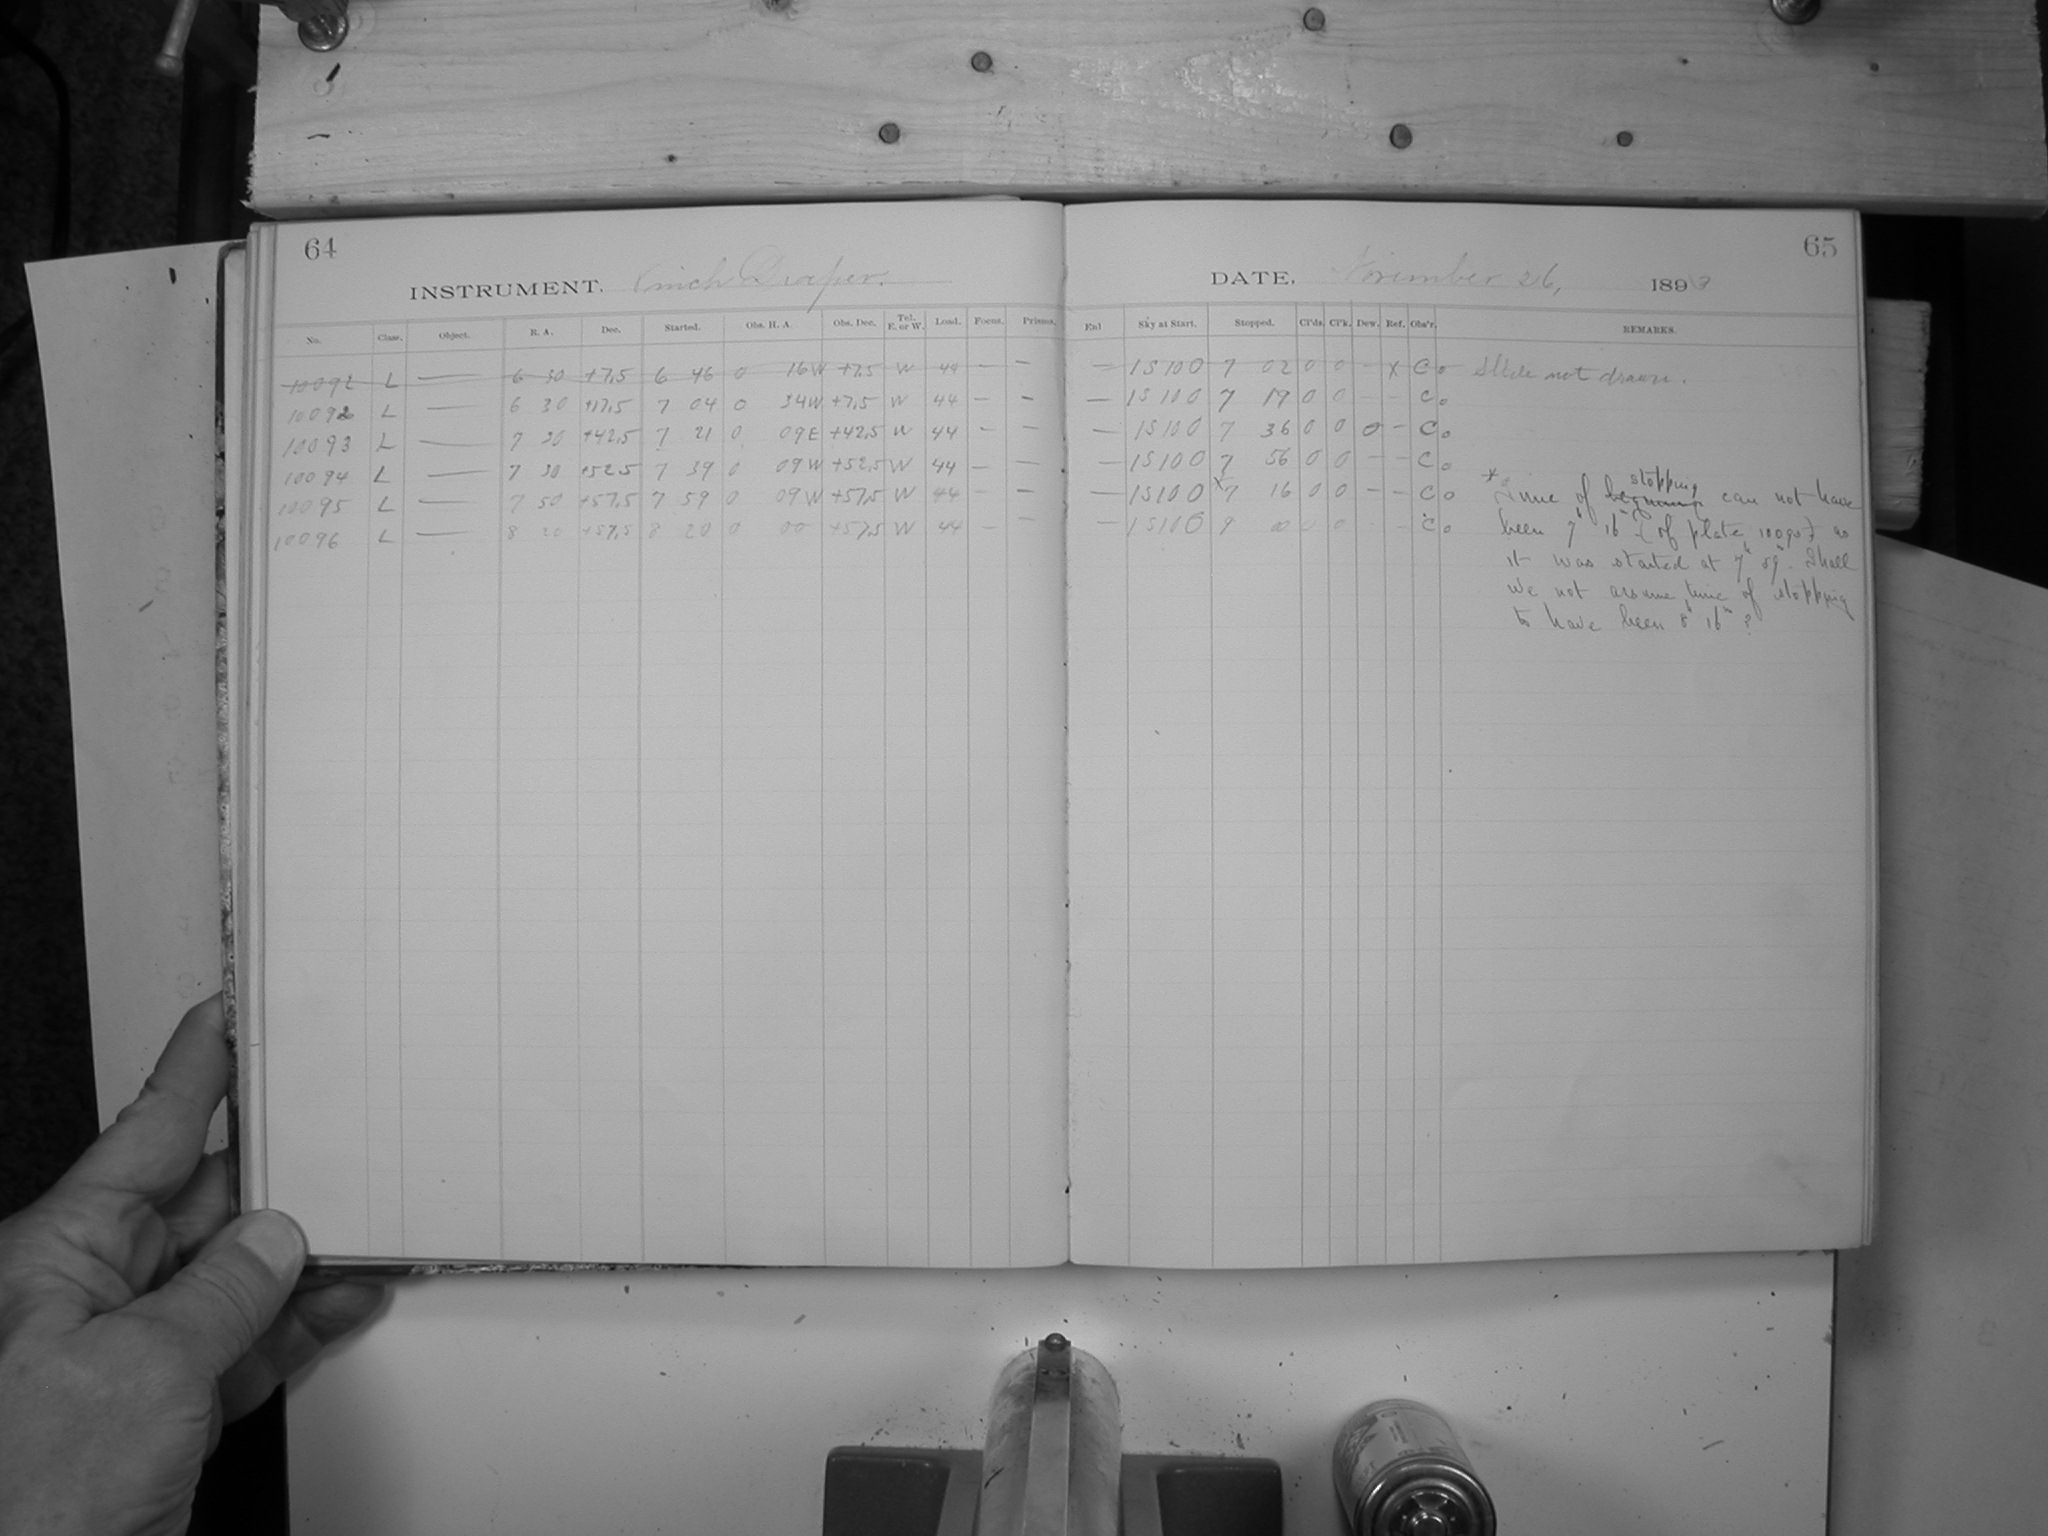 64
65
INSTRUMENT. 8 inch Draper.
DATE, November 26, 1893
No. Class. Object. R. A. Dec. Started. Obs. H. A. Obs. Dec. Tel. E. or W. Load. Focus. Prisms. Enl Sky at Start. Stopped. Cl'ds. Cl'k. Dew. Ref. Obs'r. REMARKS.
L — 6 30 +7,5 6 46 0 16W +7,5 W 44 — — — IS100 7 02 0 0 - X Co Slide not drawn.
10092 L — 6 30 +17,5 7 04 0 34W +7,5 W 44 — — — IS100 7 19 0 0 - - Co
10093 L — 7 30 +42,5 7 21 0 09E +42,5 W 44 — — — IS100 7 36 0 0 0 - Co
10094 L — 7 30 +52,5 7 39 0 09W +52,5 W 44 — — — IS100 7 56 0 0 - - Co
10095 L — 7 50 +57,5 7 59 0 09W +57,5 W 44 — — — IS100 x7 16 0 0 - - Co
10096 L — 8 20 +57,5 8 20 0 00 +57,5 W 44 — — — IS100 9 00 0 0 - - Co
* Time of beginning stopping can not have
been 7h 16m (of plate 10095) as
it was started at 7h 59m. Shall
we not assume time of stopping
to have been 8h 16m?